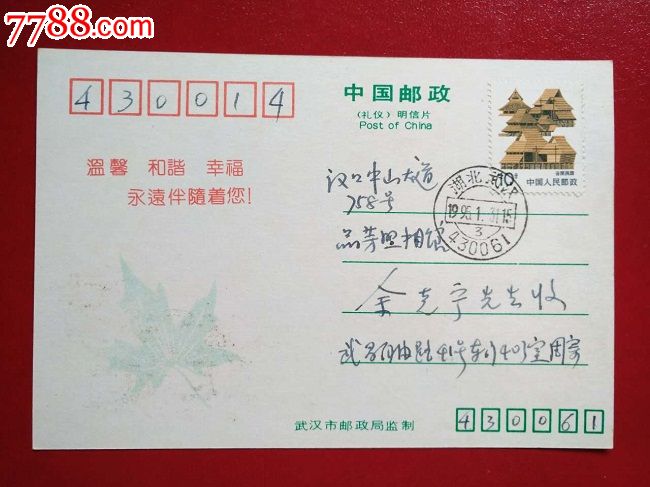 7788.com
430014
中国邮政
(礼仪)明信片
Post of China
温馨 和諧 幸福
永遠伴隨着您!
中国人民邮政
湖北武汉
1995.1.31.15
3
430061
汉口中山大道
758号
品芳照相馆
余克宁先生收
武昌 41号 403室周寄
武汉市邮政局监制
430061